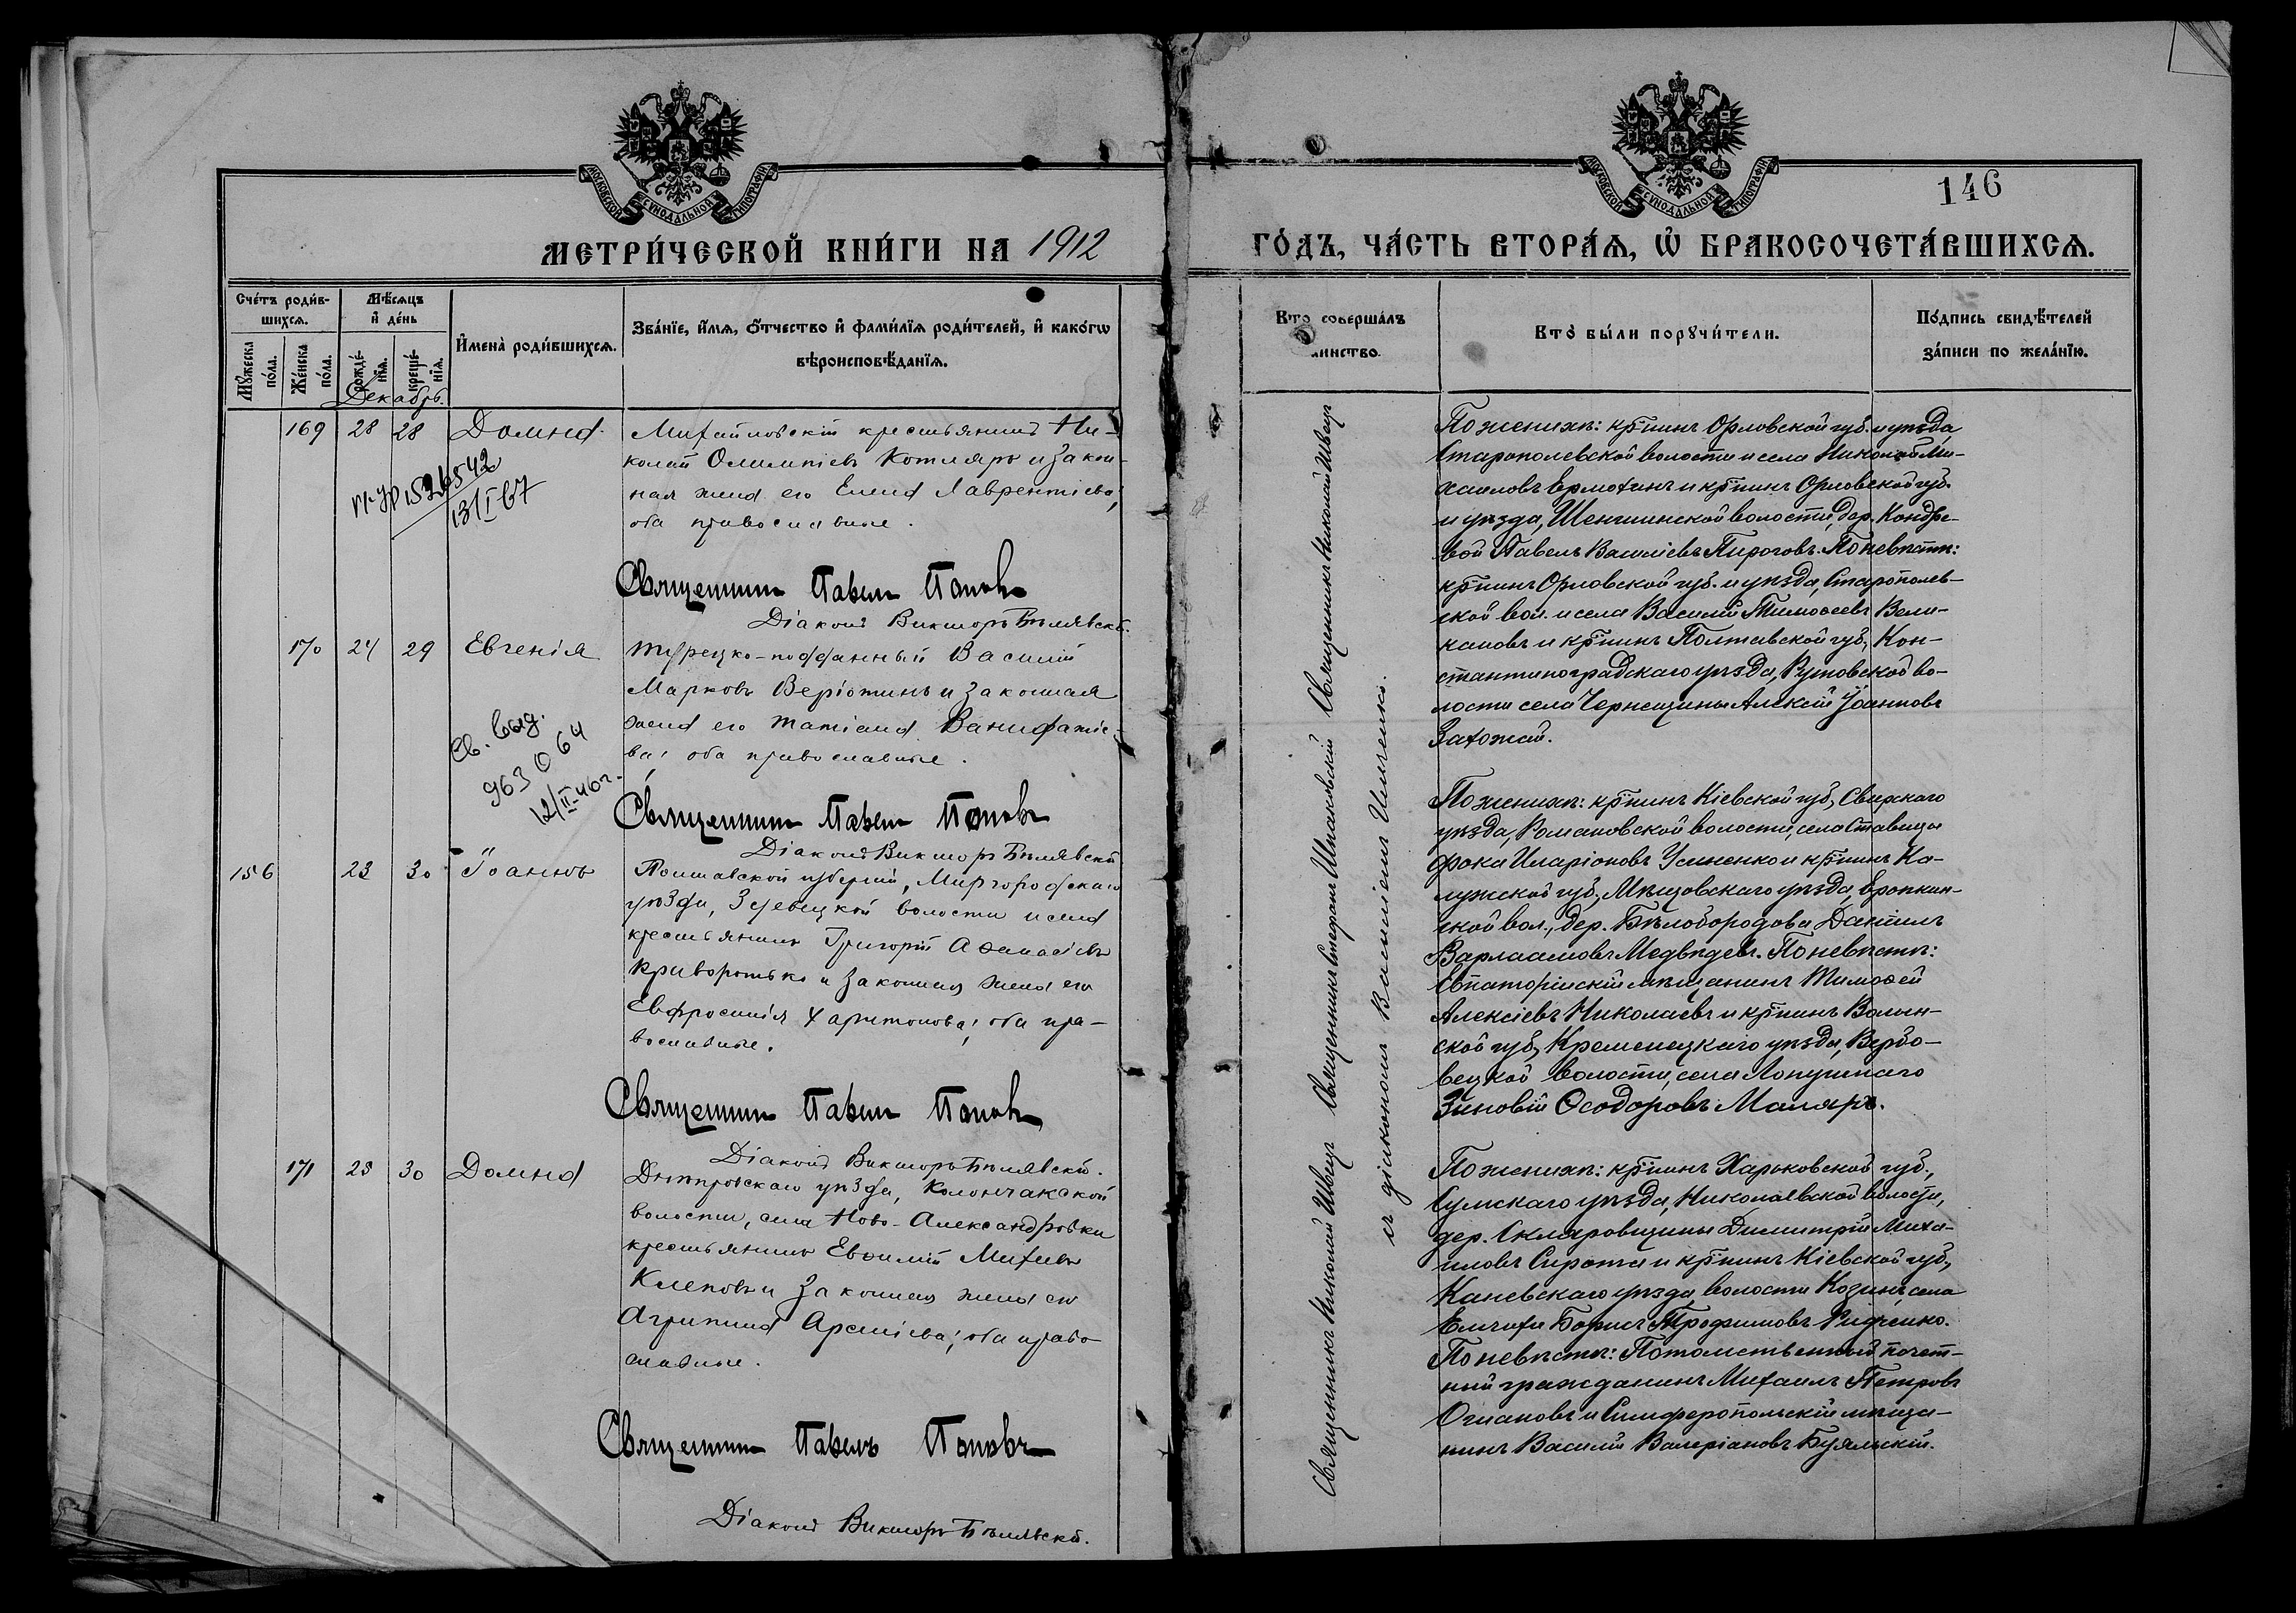 МОСКОВСКОЙ СУНОДАЛЬНОЙ ТИПОГРАФІИ
МЕТРИ́ЧЕСКОЙ КНИ́ГИ НА 1912
Сче́тъ роди́в-
шихсѧ.
Мꙋ́жеска
по́ла.
Же́нска
по́ла.
Мѣ́сѧцъ
и҆ де́нь
рожде́-
нїѧ.
креще́-
нїѧ.
И҆мена̀ роди́вшихсѧ.
Зва́нїе, и҆́мѧ, ѻ҆́тчество и҆ фами́лїѧ роди́телей, и҆ како́гѡ
вѣроисповѣ́данїѧ.
Декабрь.
169 28 28 Домна
Михайловскій крестьянинъ Ни-
колай Олимпіевъ Котляръ и закон-
ная жена его Елена Лаврентіева,
оба православные.
13/I 67
Священникъ Павелъ Поповъ
Діаконъ Викторъ Бѣлявскій.
170 24 29 Евгенія
Турецко-подданный Василій
Марковъ Веріотинъ и законная
жена его Татіана Ванифатіе-
ва; оба православные.
Св. выд.
963064
12/II-46 г.
Священникъ Павелъ Поповъ
Діаконъ Викторъ Бѣлявскій
156 23 30 Іоаннъ
Полтавской губерніи, Миргородскаго
уѣзда, волости и села
крестьянинъ Григорій Аѳанасіевъ
Криворотько и законная жена его
Евфросинія Харитонова; оба пра-
вославные.
Священникъ Павелъ Поповъ
Діаконъ Викторъ Бѣлявскій.
171 23 30 Домна
Днѣпровскаго уѣзда, Колончакской
волости, села Ново-Александровки
крестьянинъ Евѳимій Михеевъ
Клеповъ и законная жена его
Агрипина Арсеніева; оба право-
славные.
Священникъ Павелъ Поповъ
Діаконъ Викторъ Бѣлявскій.
МОСКОВСКОЙ СУНОДАЛЬНОЙ ТИПОГРАФІИ
146
ГО́ДЪ, ЧА́СТЬ ВТОРА́Ѧ, Ѡ҆ БРАКОСОЧЕТА́ВШИХСѦ.
Кто̀ соверша́лъ
таинство.
Кто̀ бы́ли порꙋчи́тели.
По́дпись свидѣ́телей
за́писи по жела́нїю.
Священникъ Николай Швецъ Священникъ Стефанъ Шпаковскій Священникъ Николай Швецъ
съ діакономъ Василіемъ Ильченко.
По женихѣ: кр̃нинъ Орловской губ. и уѣзда,
Старополевской волости и села Николай Ми-
хаиловъ Ермохинъ и кр̃нинъ Орловской губ.
и уѣзда, Шеншинской волости, дер. Кондре-
вой Павелъ Василіевъ Пироговъ. По невѣстѣ:
кр̃нинъ Орловской губ. и уѣзда, Старополев-
ской вол. и села Василій Тимоѳеевъ Вели-
кановъ и кр̃нинъ Полтавской губ., Кон-
стантиноградскаго уѣзда, Рутовской во-
лости села Чернещины Алексій Іоанновъ
Захожай.
По женихѣ: кр̃нинъ Кіевской губ., Сквирскаго
уѣзда, Романовской волости, села Ставищи
Фока Иларіоновъ Усиненко и кр̃нинъ Ка-
лужской губ., Мещовскаго уѣзда, Вроткин-
ской вол., дер. Бѣлобородова Даніилъ
Варлаамовъ Медвѣдевъ. По невѣстѣ:
Евпаторійскій мѣщанинъ Тимоѳей
Алексіевъ Николаевъ и кр̃нинъ Волын-
ской губ., Кременецкаго уѣзда, Вербо-
вецкой волости, села Лопушнаго
Зиновій Ѳеодоровъ Маляръ.
По женихѣ: кр̃нинъ Харьковской губ.,
Сумскаго уѣзда, Николаевской волости,
дер. Скляровщины Димитрій Миха-
иловъ Сирота и кр̃нинъ Кіевской губ.,
Каневскаго уѣзда, волости Козинъ, села
Емчихи Борисъ Трофимовъ Ридченко.
По невѣстѣ: Потомственный почет-
ный гражданинъ Михаилъ Петровъ
Огіановъ и Симферопольскій мѣща-
нинъ Василій Валеріановъ Буяльскій.